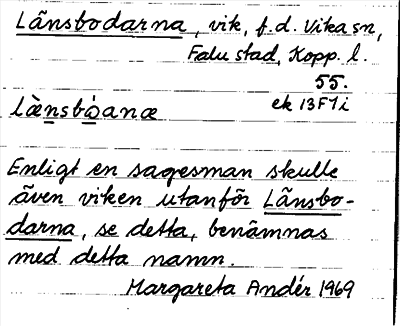 Länsbodarna, vik, f.d. Vika sn,
Falu stad, Kopp. l.
55.
ek 13F1i
Länsbòanæ
Enligt en sagesman skulle
även viken utanför Länsbo-
darna, se detta, benämnas
med detta namn.
Margareta Andér 1969